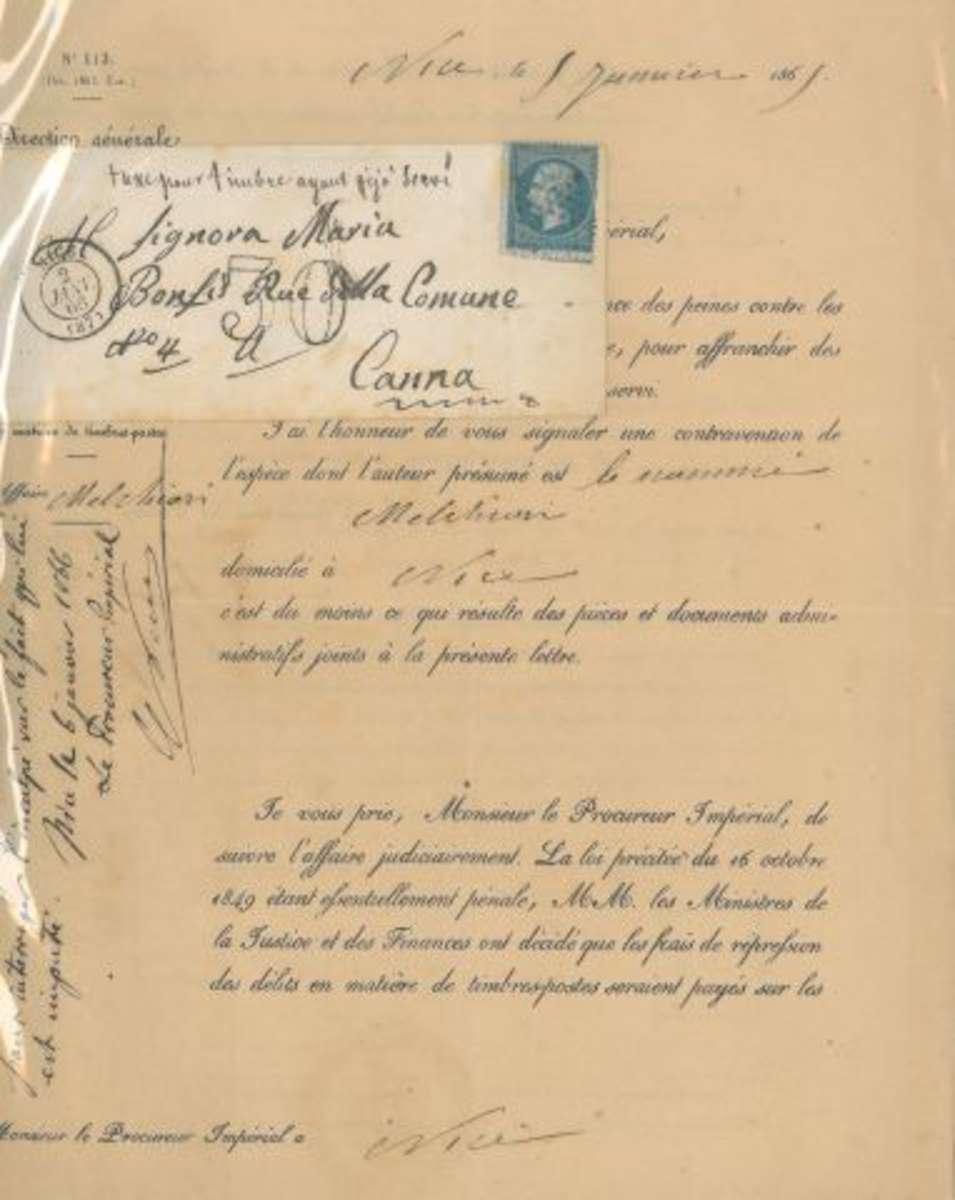 N° 113.
Nice, le 5 Janvier 1865.
Direction générale
taxe pour timbre ayant déjà servi
Signora Maria
Bonfis Rue della Comune
No 4
Canna
NICE
2
JANV
(87)
30
périal,
nce des peines contre les
e, pour affranchir des
servi.
matière de timbres-postes
J'ai l'honneur de vous signaler une contravention de
l'espèce dont l'auteur présumé est le nommé
Affaire Melchiori
Melchiori
domicilié à Nice
c'est du moins ce qui résulte des pièces et documents admi-
nistratifs joints à la présente lettre.
pour interroger l'inculpé sur le fait qui lui
est imputé.
Nice le 6 janvier 1866
Le Procureur Impérial
Je vous prie, Monsieur le Procureur Impérial, de
suivre l'affaire judiciairement. La loi précitée du 16 octobre
1849 étant essentiellement pénale, MM. les Ministres de
la Justice et des Finances ont décidé que les frais de répression
des délits en matière de timbres-postes seraient payés sur les
Monsieur le Procureur Impérial à Nice